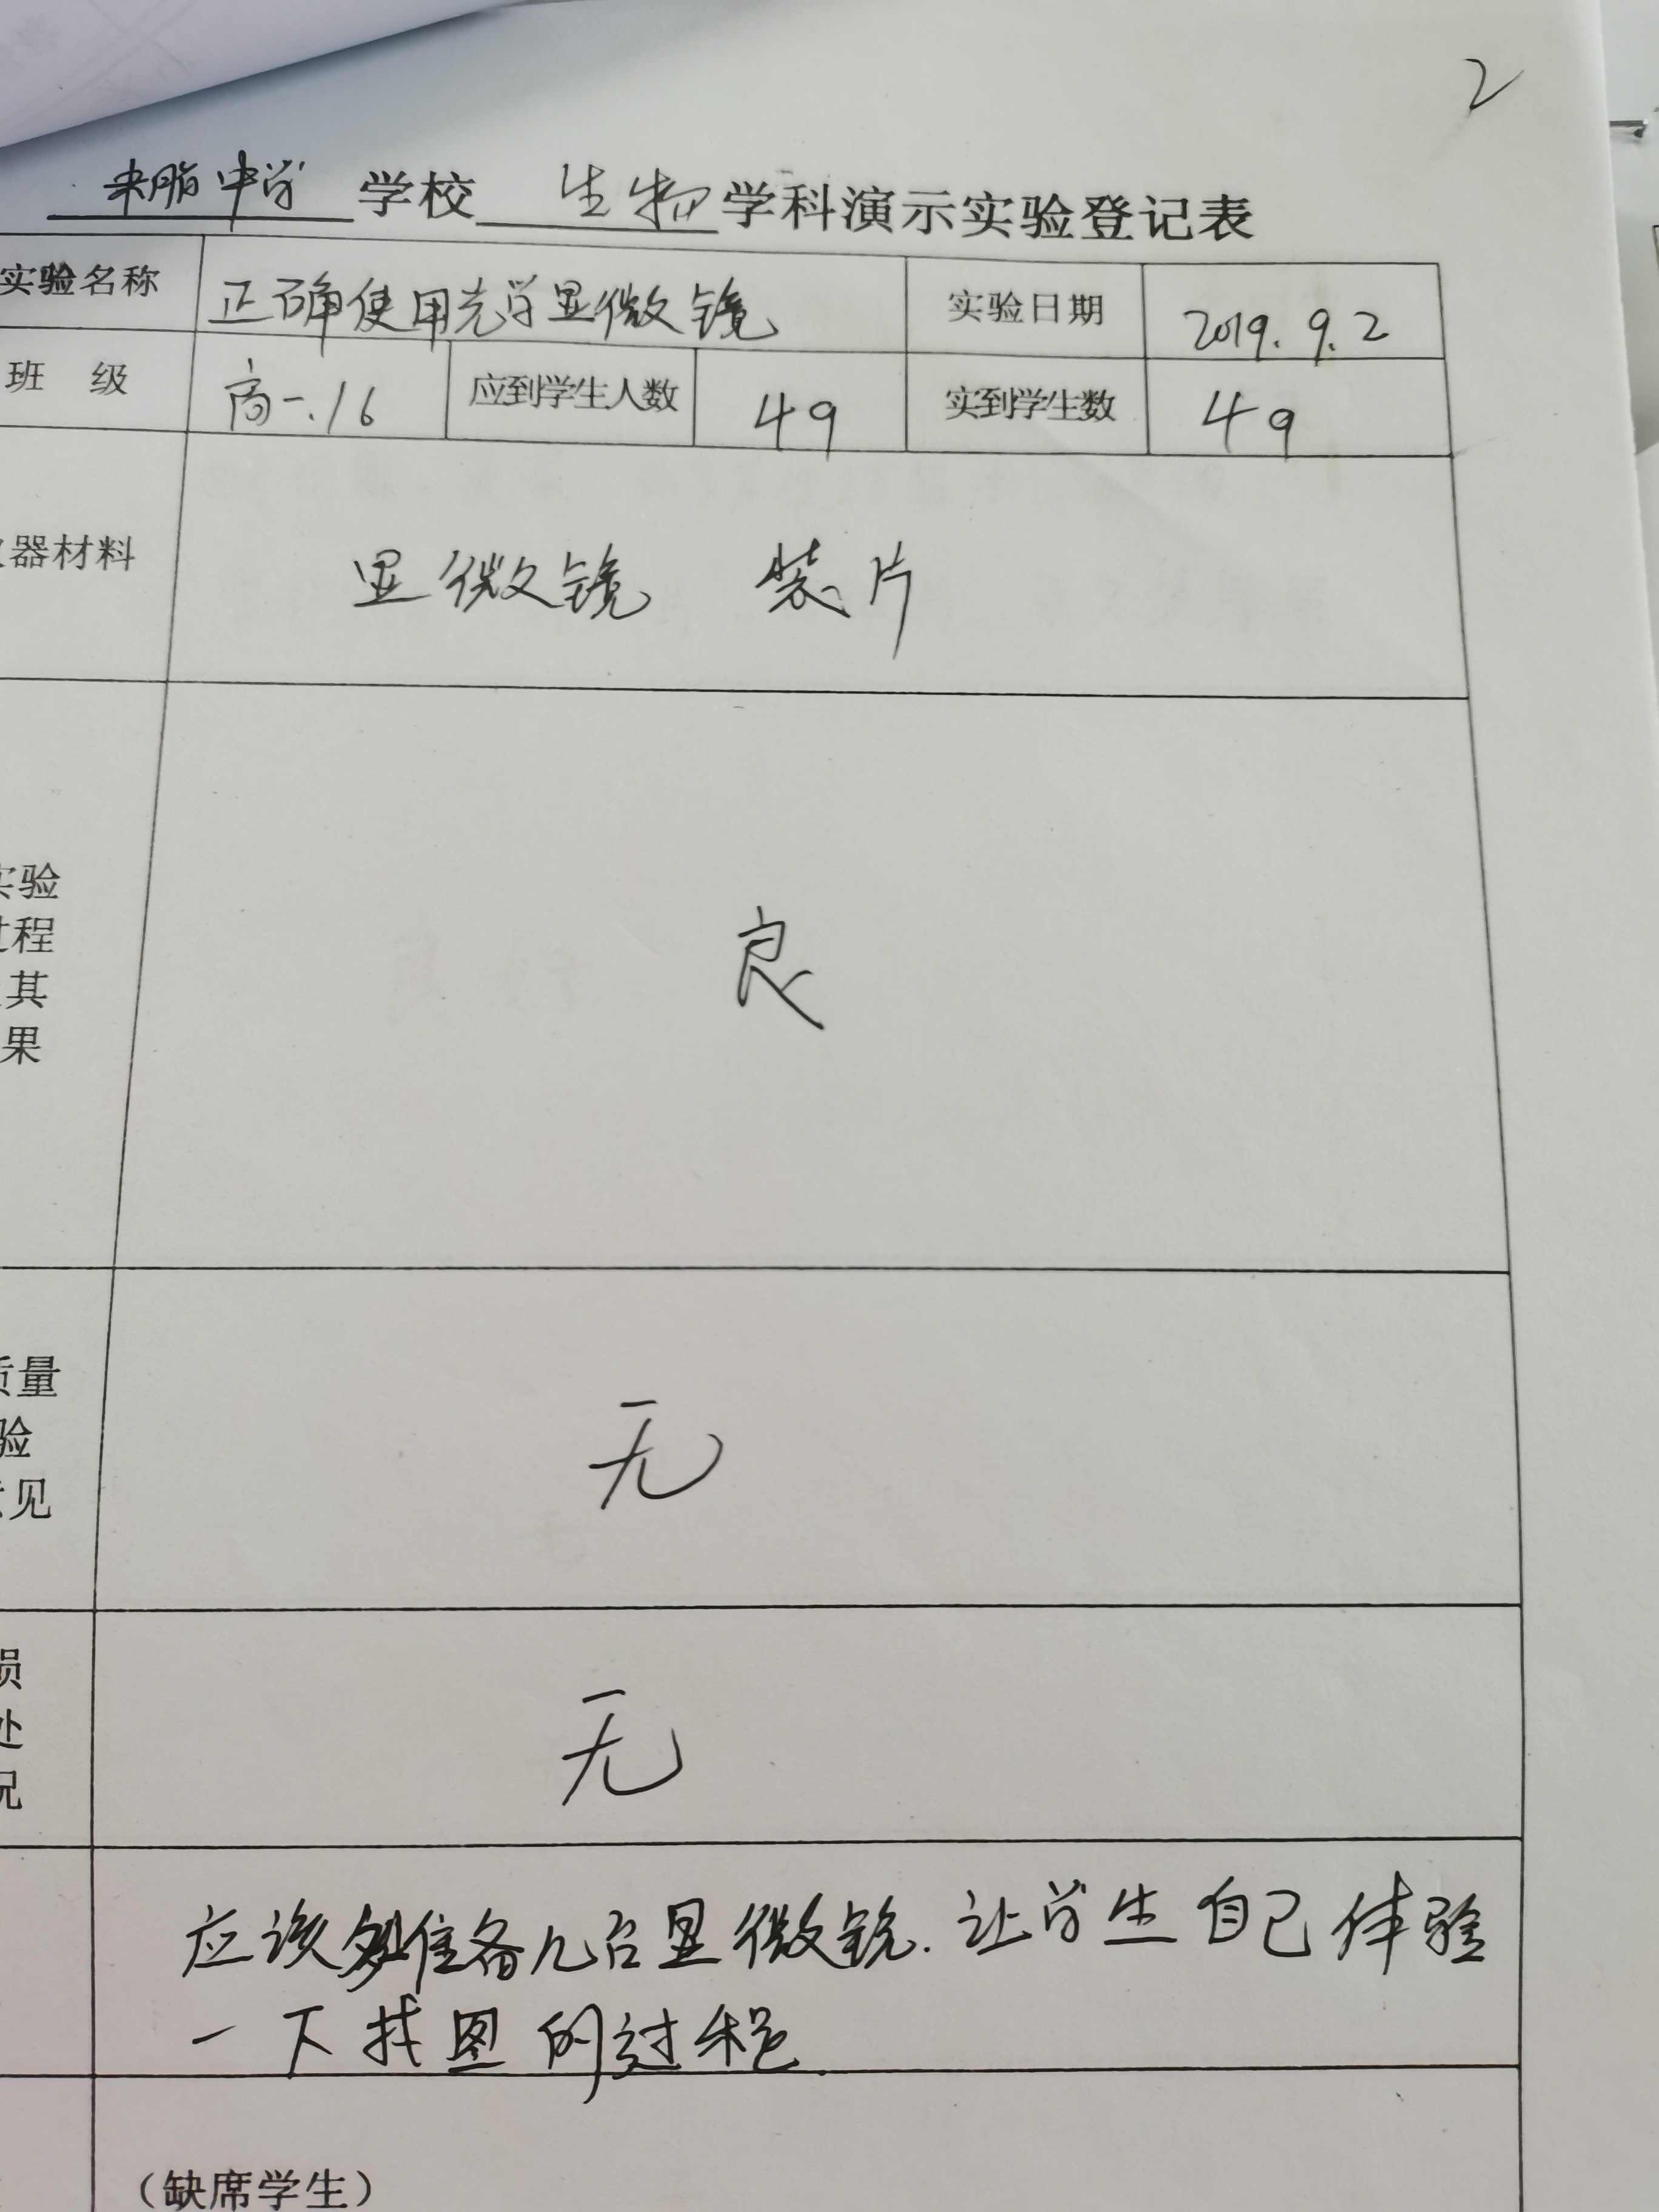 2
米脂中学 学校 生物 学科演示实验登记表
实验名称 正确使用光学显微镜 实验日期 2019.9.2
班 级 高一.16 应到学生人数 49 实到学生数 49
器材料 显微镜 装片
实验
过程
其
果
良
质量
验
意见
无
损
处
况
无
应该多准备几台显微镜.让学生自己体验
一下找图的过程
（缺席学生）